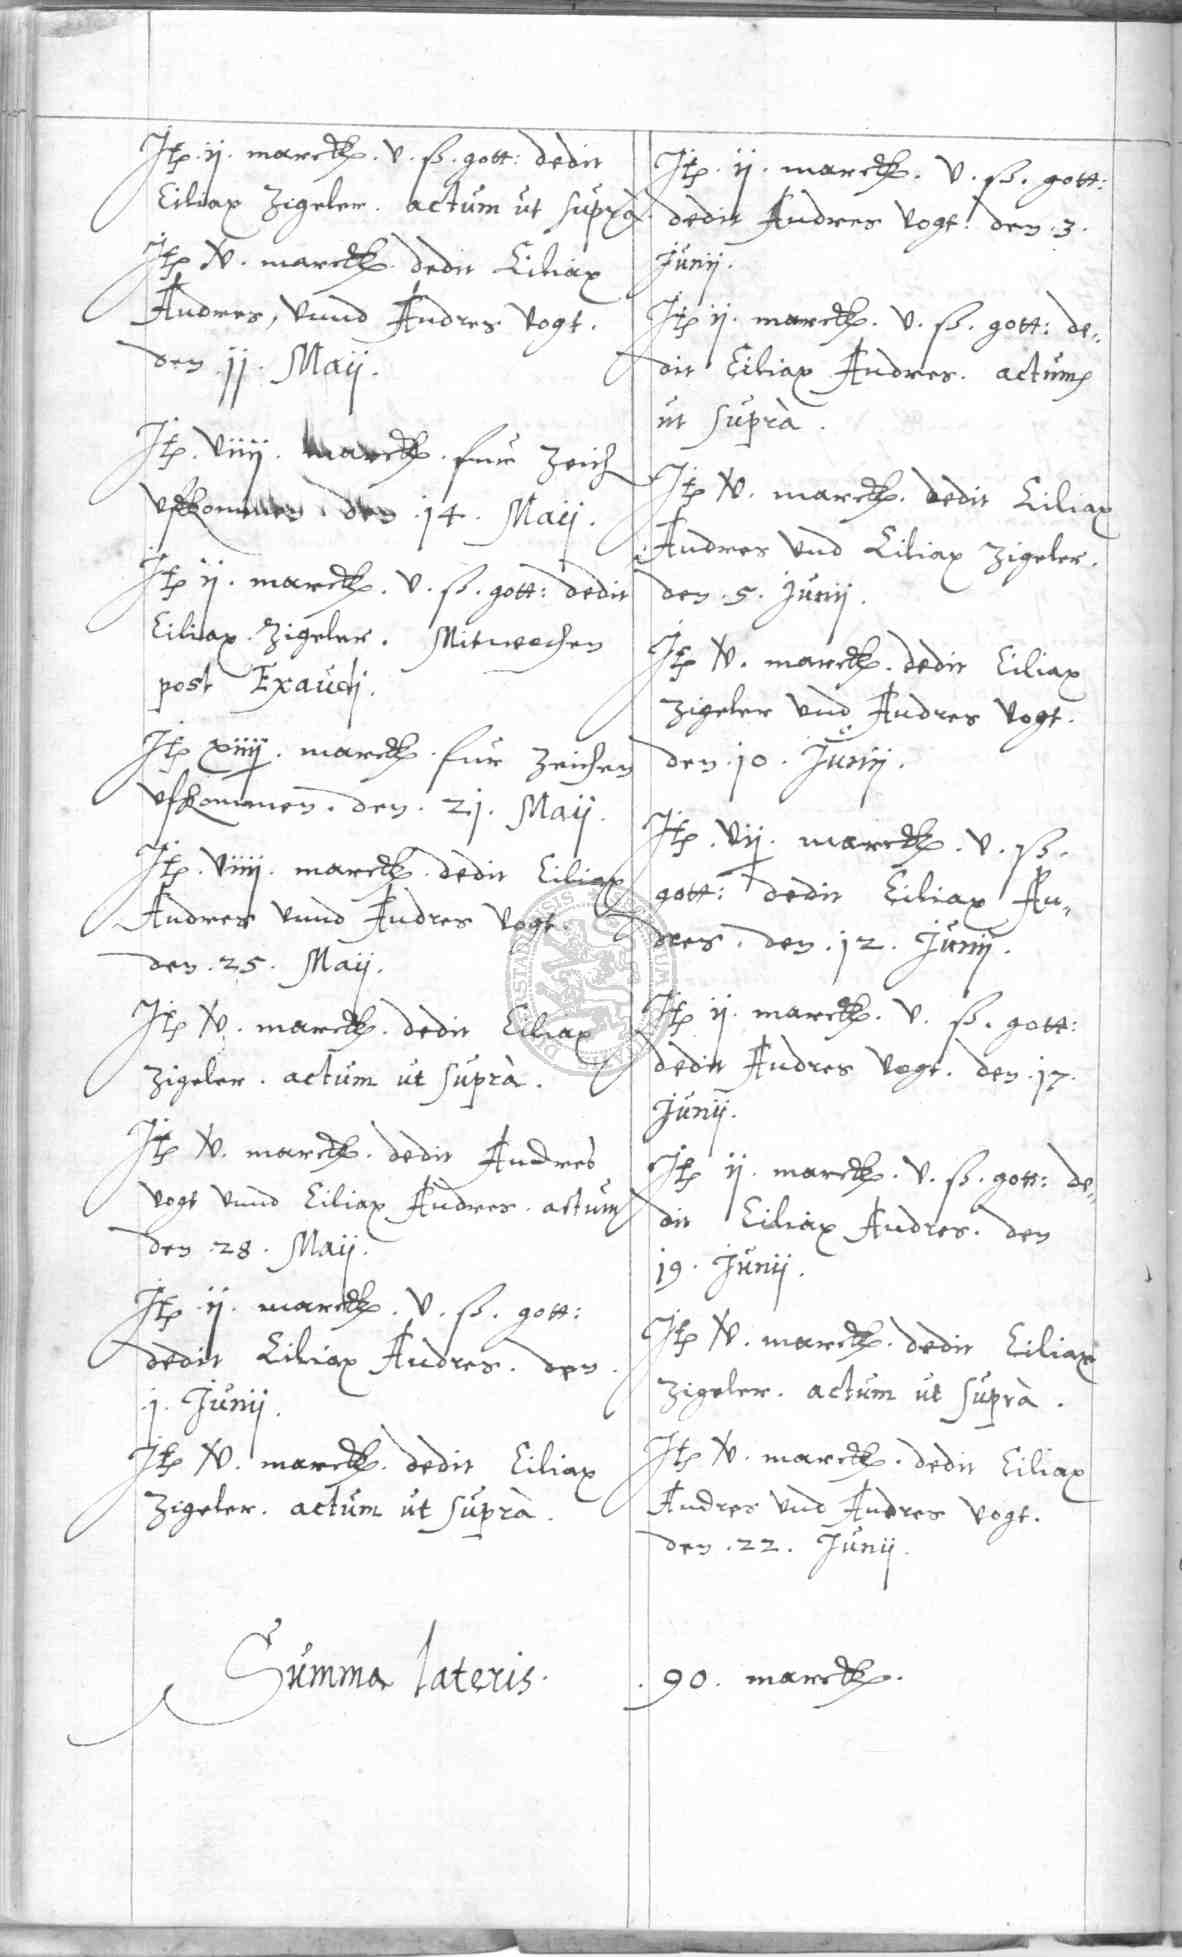 Itē. ij. marckh. v. ß. gott: dedit
Ciliax Zigeler. actum ut suprà
Itē v. marckh. dedit Ciliax
Andres, vnnd Andres Vogt.
den. 11. Maij.
Itē. viiij. marckh. fur Zeich
vfkommen den. 14. Maij.
Itē ij. marckh. v. ß. gott: dedit
Ciliax Zigeler. Mitwochen
post Exaudi.
Itē xiiij. marckh. fur Zeichen
vfkommen. den. 21. Maij.
Itē. viiij. marckh. dedit Ciliax
Andres vnnd Andres Vogt.
den. 25. Maij.
Itē v. marckh. dedit Ciliax
Zigeler. actum ut suprà.
Itē v. marckh. dedit Andres
Vogt vnnd Ciliax Andres. actum
den. 28. Maij.
Itē ij. marckh. v. ß. gott:
dedit Ciliax Andres. den.
.1. Junij.
Itē v. marckh. dedit Ciliax
Zigeler. actum ut suprà.
Itē. ij. marckh. v. ß. gott:
dedit Andres Vogt. den. 3.
Junij.
Itē ij. marckh. v. ß. gott: de„
dit Ciliax Andres. actum
ut suprà.
Itē v. marckh. dedit Ciliax
Andres vnd Ciliax Zigeler.
den. 5. Junij.
Itē v. marckh. dedit Ciliax
Zigeler vnd Andres Vogt.
den. 10. Junij.
Itē. vij. marckh. v. ß.
gott: dedit Ciliax An„
dres. den. 12. Junij.
Itē ij. marckh. v. ß. gott:
dedit Andres Vogt. den. 17.
Junij.
Itē ij. marckh. v. ß. gott: de„
dit Ciliax Andres. den
19. Junij.
Itē v. marckh. dedit Ciliax
Zigeler. actum ut suprà.
Itē v. marckh. dedit Ciliax
Andres vnd Andres Vogt.
den. 22. Junij.
Summa lateris. .90. marckh.